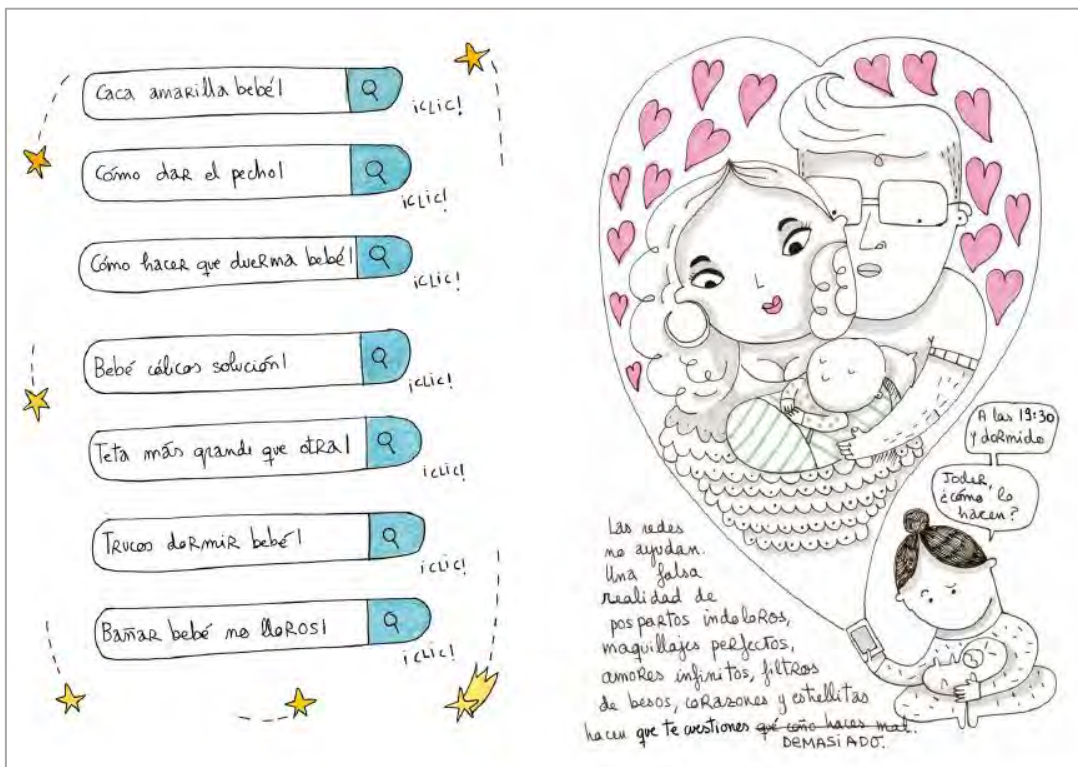 Caca amarilla bebé|
¡CLIC!
Cómo dar el pecho|
¡CLIC!
Cómo hacer que duerma bebé|
¡CLIC!
Bebé cólicos solución|
¡CLIC!
Teta más grande que otra|
¡CLIC!
Trucos dormir bebé|
¡CLIC!
Bañar bebé no lloros|
¡CLIC!
A las 19:30
y dormido
Joder,
¿cómo lo
hacen?
Las redes
no ayudan.
Una falsa
realidad de
pospartos indoloros,
maquillajes perfectos,
amores infinitos, filtros
de besos, corazones y estrellitas
hacen que te cuestiones qué coño haces mal.
DEMASIADO.